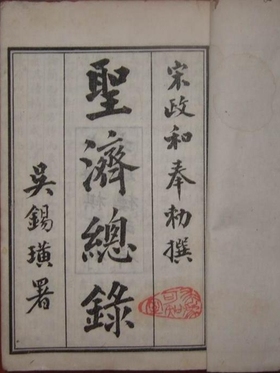 宋政和奉勅撰
聖濟總錄
吳錫璜署